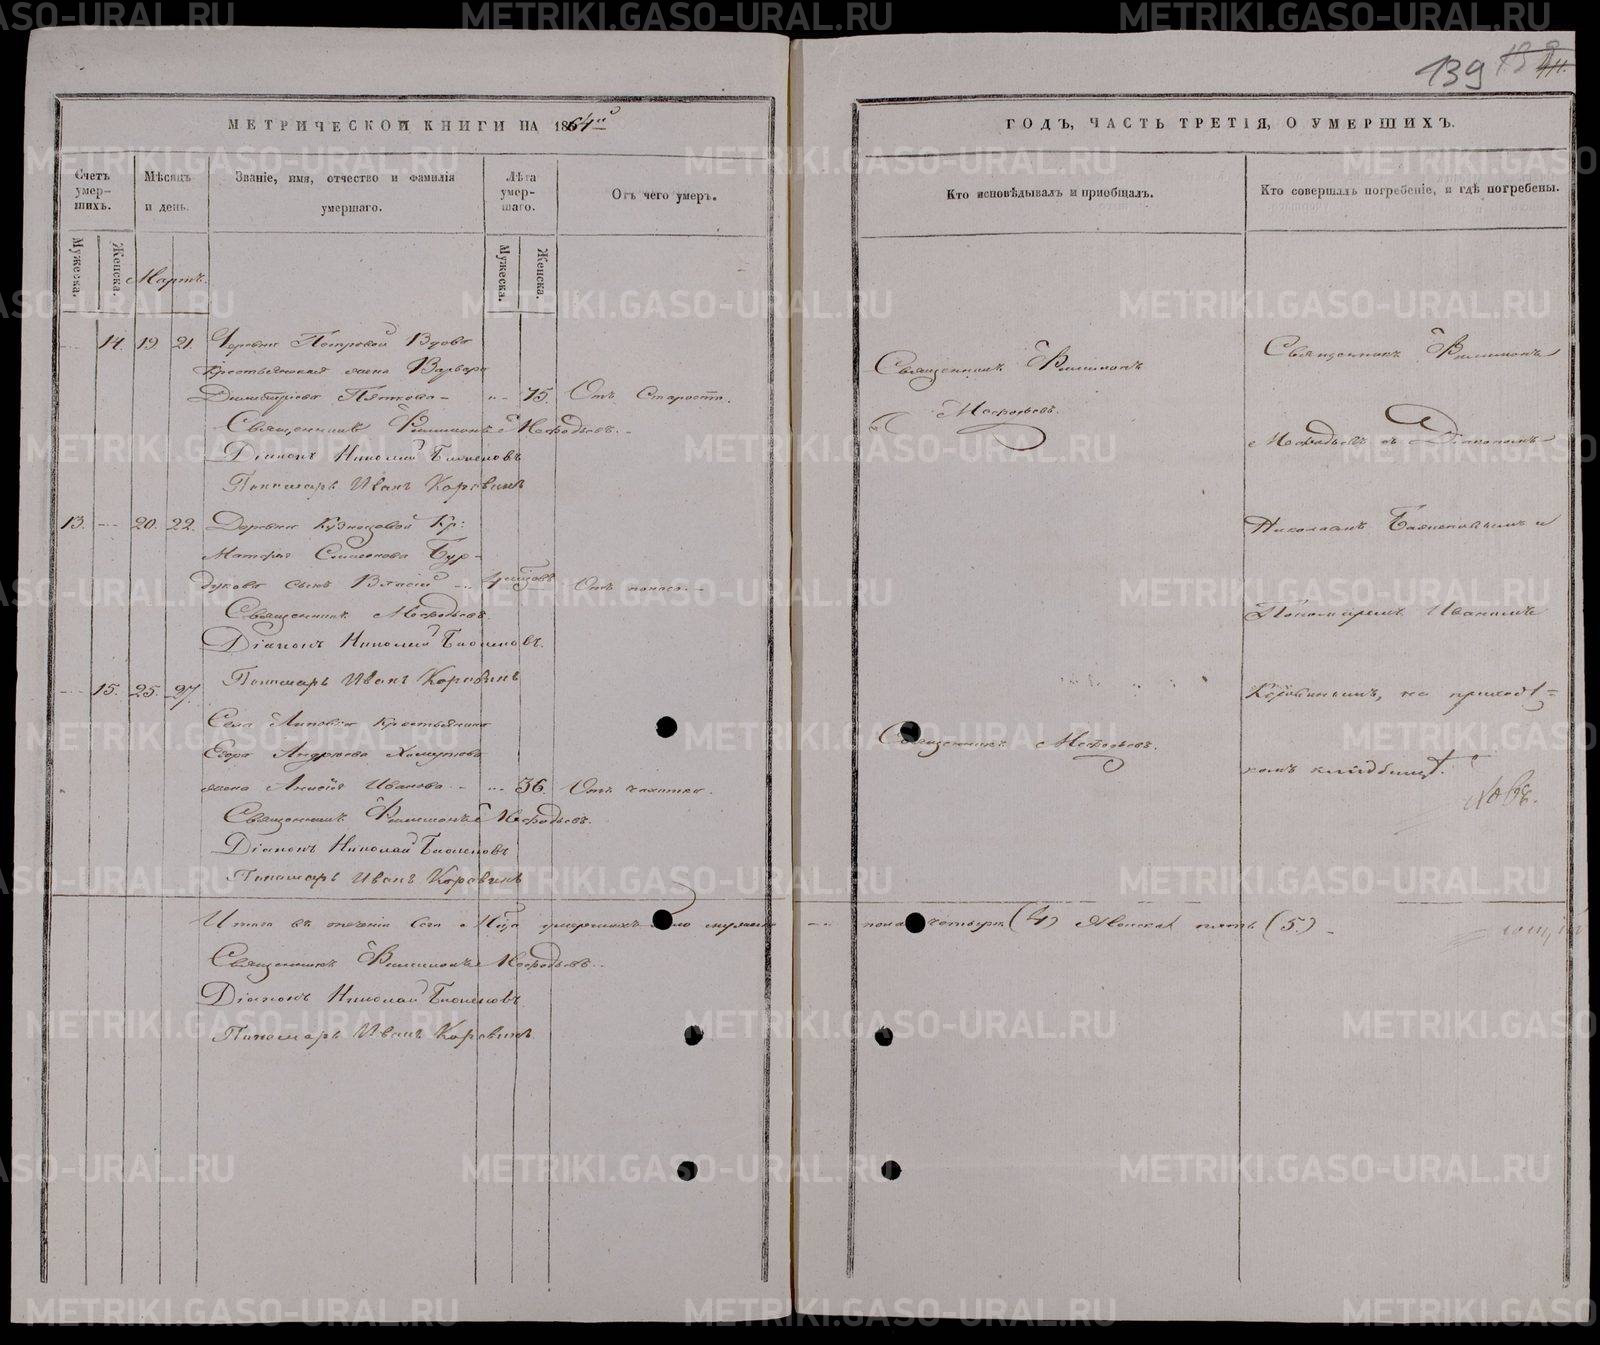 139
МЕТРИЧЕСКОЙ КНИГИ НА 1864й
ГОДЪ, ЧАСТЬ ТРЕТІЯ, О УМЕРШИХЪ.
Счетъ умер-шихъ.
Мѣсяцъ и день.
Званіе, имя, отчество и фамилія умершаго.
Лѣта умер-шаго.
Отъ чего умеръ.
Кто исповѣдывалъ и пріобщалъ.
Кто совершалъ погребеніе, и гдѣ погребены.
Мужеска.
Женска.
Мартъ.
Мужеска.
Женска.
14. 19 21. Деревни Петровой Вдова
Крестьянская жена Варвара
Димитріева Пяткова 75. Отъ Старости.
Священникъ Филимонъ Мефодьевъ.
Діаконъ Николай
Пономарь Иванъ Коровинъ
13. 20. 22. Деревни Кузнецовой Кр:
Матфія Симеонова Бур-
дукова сынъ Власій Отъ поноса.
Священникъ Мефодьевъ.
Діаконъ Николай
Пономарь Иванъ Коровинъ
15. 25. 27.
Села Липовки крестьянина
Егора Андреева Хомутова
жена Анисія Иванова 36. Отъ чахотки.
Священникъ Филимонъ Мефодьевъ.
Діаконъ Николай
Пономарь Иванъ Коровинъ
Итого въ теченіи Сего Мца умершихъ было мужеска
пола четыре (4) Женска пять (5).
Священникъ Филимонъ Мефодьевъ.
Діаконъ Николай
Пономарь Иванъ Коровинъ
Священникъ Филимонъ
Мефодьевъ.
Священникъ Мефодьевъ.
Священникъ Филимонъ
Мефодьевъ съ Діакономъ
Николаемъ и
Пономаремъ Иваномъ
Коровинымъ, на приходс=
комъ кладбищѣ.
METRIKI.GASO-URAL.RU